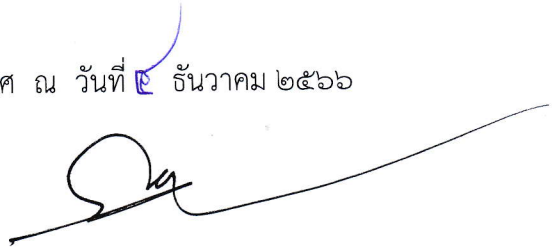 ศ ณ วันที่ ๕ ธันวาคม ๒๕๖๖